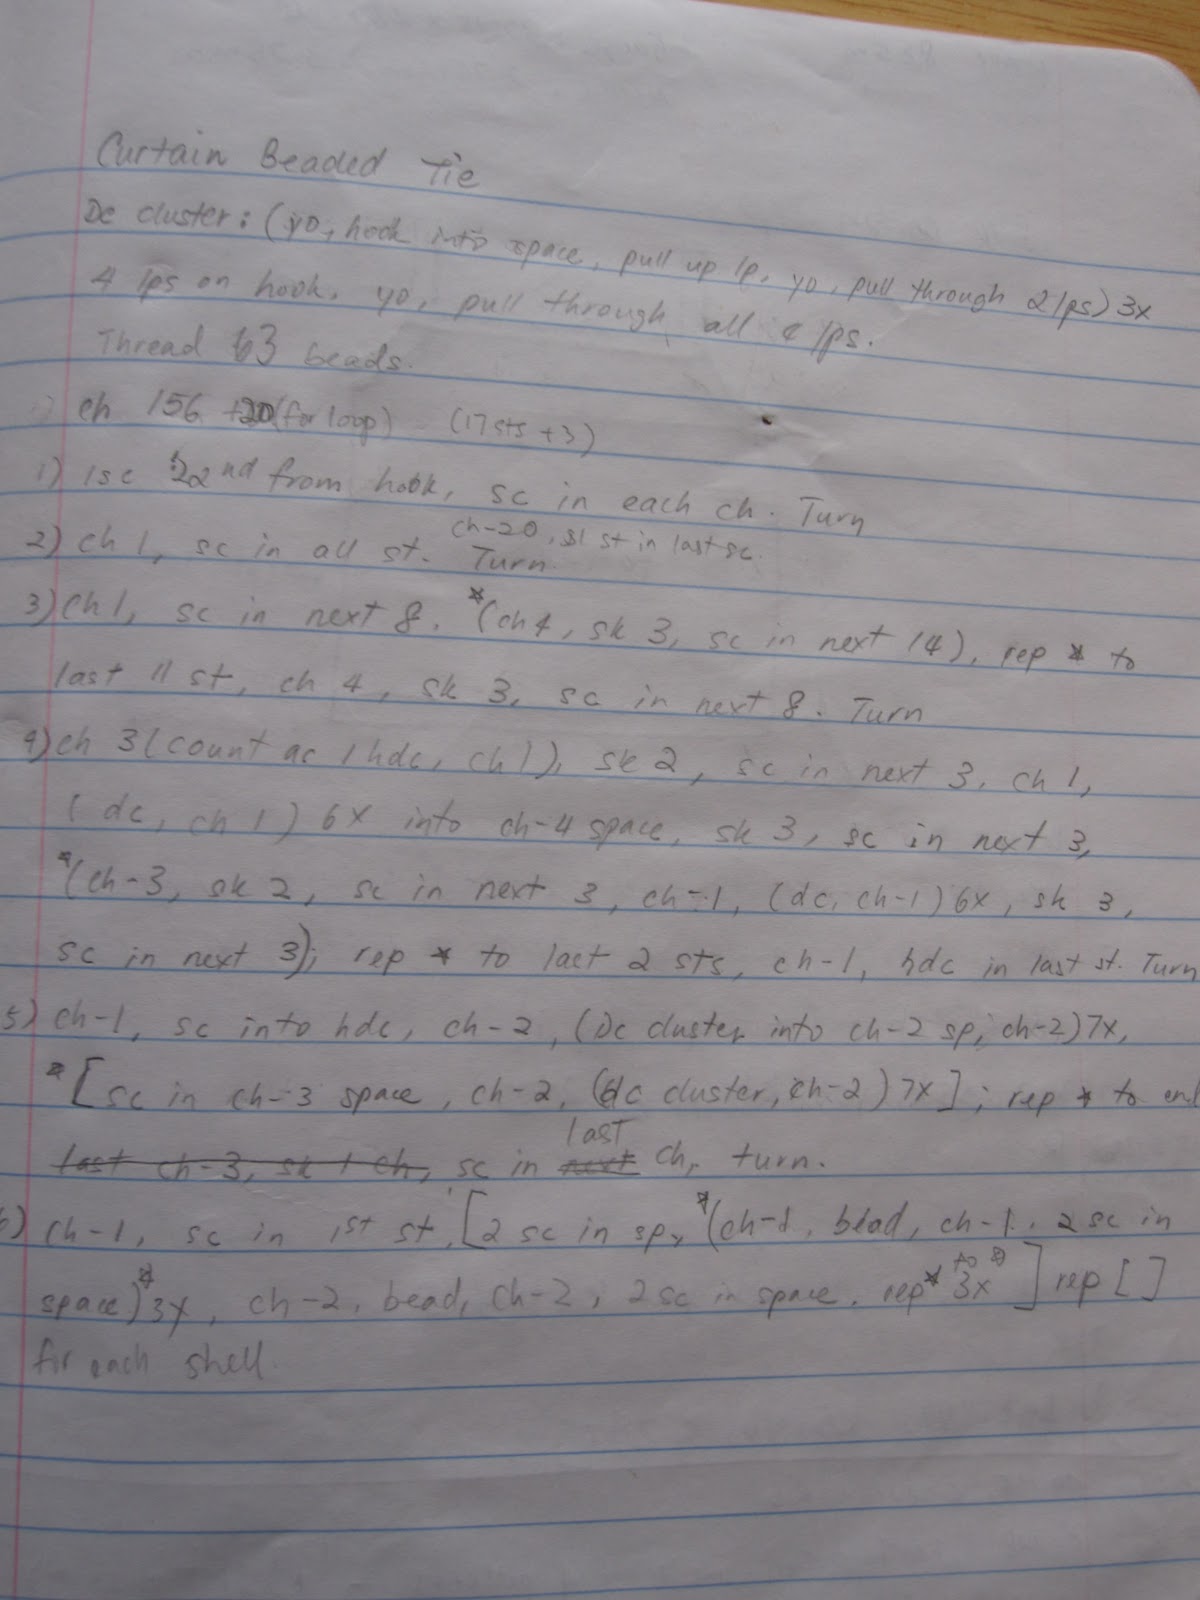 Curtain Beaded Tie
Dc cluster: (yo, hook into space, pull up lp, yo, pull through 2 lps) 3x
4 lps on hook, yo, pull through all 4 lps.
Thread 63 beads.
ch 156 +20 (for loop) (17 sts +3)
1) 1sc 22nd from hook, sc in each ch. Turn
ch-20, sl st in last sc.
2) ch 1, sc in all st. Turn.
3) Ch 1, sc in next 8. *(ch 4, sk 3, sc in next 14), rep * to
last 11 st, ch 4, sk 3, sc in next 8. Turn
4) ch 3 (count as 1 hdc, ch 1), sk 2, sc in next 3, ch 1,
(dc, ch 1) 6x into ch-4 space, sk 3, sc in next 3,
*(ch-3, sk 2, sc in next 3, ch-1, (dc, ch-1) 6x, sk 3,
sc in next 3); rep * to last 2 sts, ch-1, hdc in last st. Turn
5) ch-1, sc into hdc, ch-2, (Dc cluster into ch-2 sp, ch-2) 7x,
*[sc in ch-3 space, ch-2, (dc cluster, ch-2) 7x]; rep * to end
last
last ch-3, sk 1 ch, sc in next ch, turn.
6) ch-1, sc in 1st st, [2 sc in sp, *(ch-1, bead, ch-1, 2 sc in
space)* 3x, ch-2, bead, ch-2, 2 sc in space. rep * to * 3x] rep [ ]
for each shell.